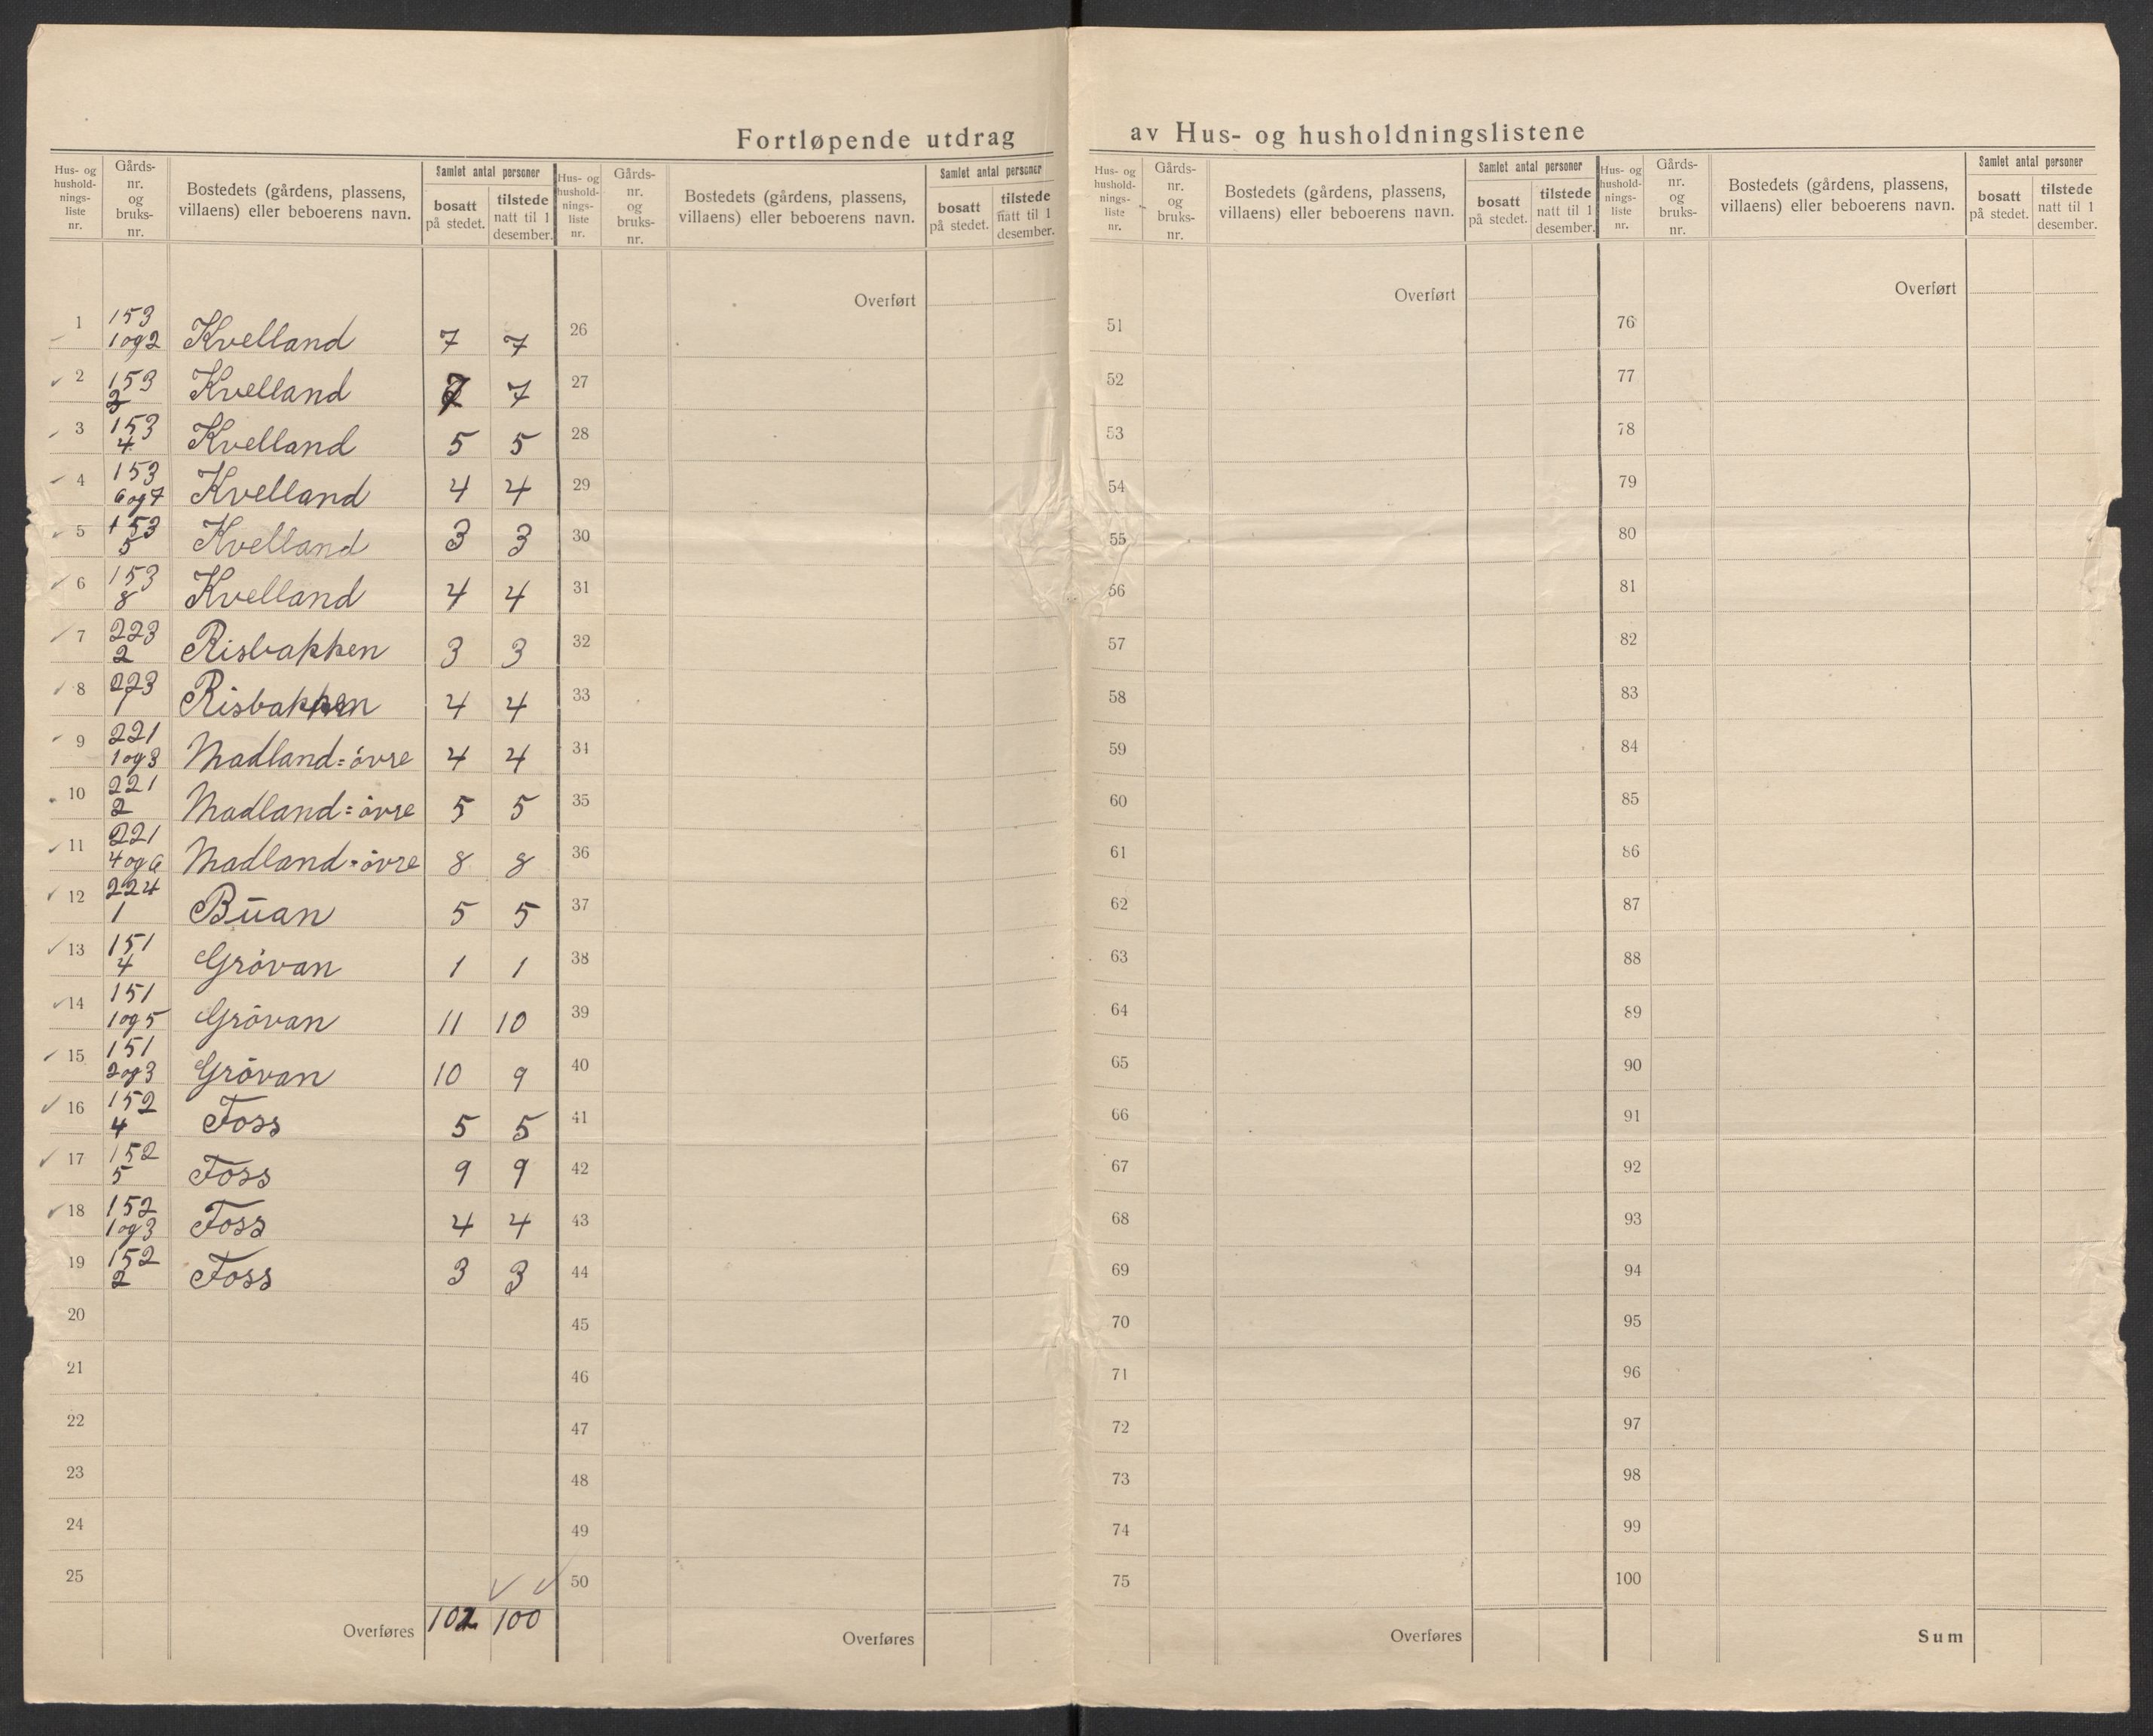 Fortløpende utdrag av Hus- og husholdningslistene
Hus- og hushold-nings-liste nr. | Gårds-nr. og bruks-nr. | Bostedets (gårdens, plassens, villaens) eller beboerens navn. | Samlet antal personer | bosatt på stedet. | tilstede natt til 1 desember.
1 153 1 og 2 Kvelland 7 7
2 153 2 Kvelland 7 7
3 153 4 Kvelland 5 5
4 153 6 og 7 Kvelland 4 4
5 153 5 Kvelland 3 3
6 153 8 Kvelland 4 4
7 223 2 Risbakken 3 3
8 223 1 Risbakken 4 4
9 221 1 og 3 Madland=övre 4 4
10 221 2 Madland=övre 5 5
11 221 4 og 6 Madland=övre 8 8
12 224 1 Būan 5 5
13 151 4 Grövan 1 1
14 151 1 og 5 Grövan 11 10
15 151 2 og 3 Grövan 10 9
16 152 4 Foss 5 5
17 152 5 Foss 9 9
18 152 1 og 3 Foss 4 4
19 152 2 Foss 3 3
20
21
22
23
24
25
Overføres 102 100
Hus- og hushold-nings-liste nr. | Gårds-nr. og bruks-nr. | Bostedets (gårdens, plassens, villaens) eller beboerens navn. | Samlet antal personer | bosatt på stedet. | tilstede natt til 1 desember.
Overført
26
27
28
29
30
31
32
33
34
35
36
37
38
39
40
41
42
43
44
45
46
47
48
49
50
Overføres
Hus- og hushold-nings-liste nr. | Gårds-nr. og bruks-nr. | Bostedets (gårdens, plassens, villaens) eller beboerens navn. | Samlet antal personer | bosatt på stedet. | tilstede natt til 1 desember.
Overført
51
52
53
54
55
56
57
58
59
60
61
62
63
64
65
66
67
68
69
70
71
72
73
74
75
Overføres
Hus- og hushold-nings-liste nr. | Gårds-nr. og bruks-nr. | Bostedets (gårdens, plassens, villaens) eller beboerens navn. | Samlet antal personer | bosatt på stedet. | tilstede natt til 1 desember.
Overført
76
77
78
79
80
81
82
83
84
85
86
87
88
89
90
91
92
93
94
95
96
97
98
99
100
Sum